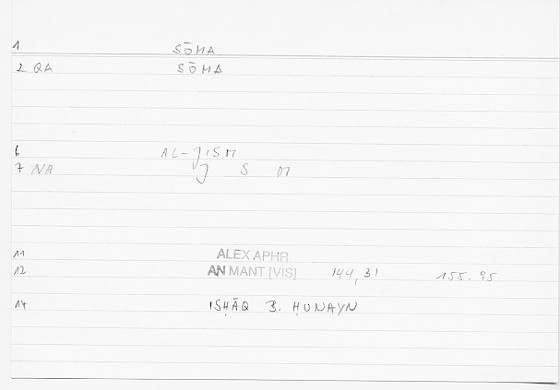 1 SŌMA
2 QA SŌMA
6 AL-JISM
7 NA J S M
11 ALEX APHR.
12 AN MANT [VIS] 144,31 155.95
14 ISḤĀQ B. ḤUNAYN